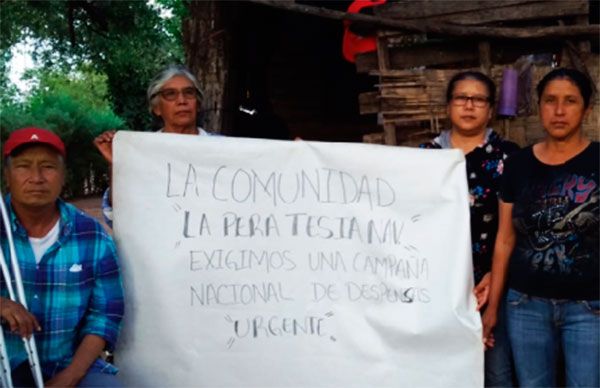 LA COMUNIDAD
"LA PERA TESIA NAV."
EXIGIMOS UNA CAMPAÑA
NACIONAL DE DESPENSAS
"URGENTE"
A